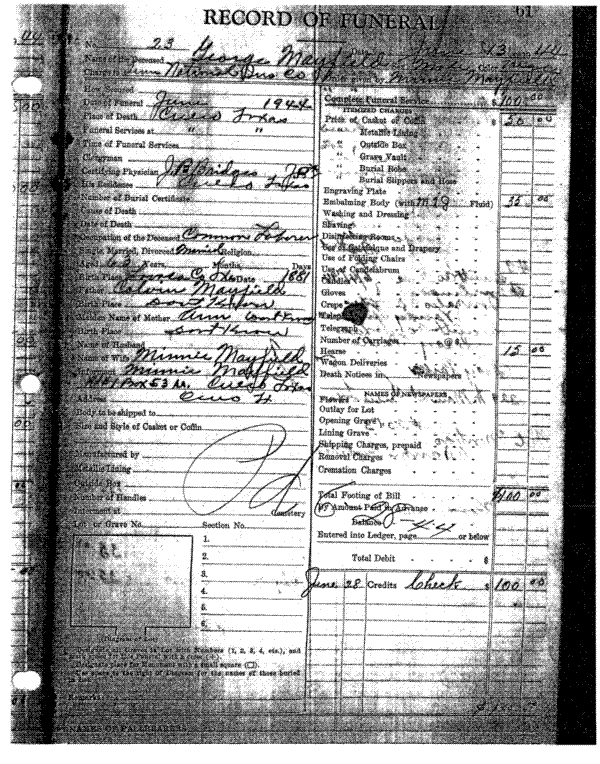 RECORD OF FUNERAL
61
No. 23
Date June 13 1944
Name of the Deceased George Mayfield
Charge to National Ins Co
Minnie Mayfield
How Secured
Date of Funeral June 1944
Place of Death Cuero Texas
Funeral Services at " "
Time of Funeral Services
Clergyman
Certifying Physician J.P. Bridges J.P.
His Residence Cuero Texas
Number of Burial Certificate
Cause of Death
Date of Death
Occupation of the Deceased Common Laborer
Single, Married, Divorced Married Religion
Aged 63 Years Months, Days
Birth Place Date 1881
Father Calvin Mayfield
Birth Place Dont Know
Maiden Name of Mother Ann Dont Know
Birth Place Dont Know
Name of Husband
Name of Wife Minnie Mayfield
Minnie Mayfield
Rt 1 Box 53 AA. Cuero Texas
Address Cuero
Body to be shipped to
Size and Style of Casket or Coffin
Manufactured by
Metallic Lining
Outside Box
Number of Handles
Interment at Cemetery
Lot or Grave No. Section No.
1.
2.
3.
4.
5.
6.
(Diagram of Lot)
Designate all Graves in Lot with Numbers (1, 2, 3, 4, etc.), and
Designate place for Monument with a small square (□).
Use space to the right of Diagram for the names of those buried
Remarks
NAMES OF PALLBEARERS
Pd
Complete Funeral Service $ 100 00
ITEMIZED CHARGES
Price of Casket or Coffin $ 50 00
" Metallic Lining
" Outside Box
" Grave Vault
" Burial Robe
" Burial Slippers and Hose
Engraving Plate
Embalming Body (with Fluid) 35 00
Washing and Dressing
Shaving
Disinfecting Rooms
Use of Catafalque and Drapery
Use of Folding Chairs
Use of Candelabrum
Candles
Gloves
Crepe
Telegraph
Number of Carriages @ $
Hearse 15 00
Wagon Deliveries
Death Notices in Newspapers
NAMES OF NEWSPAPERS
Flowers
Outlay for Lot
Opening Grave
Lining Grave
Shipping Charges, prepaid
Removal Charges
Cremation Charges
Total Footing of Bill $100 00
By Amount Paid in Advance
Balance
44
Entered into Ledger, page or below
Total Debit $
June 28 Credits Check $ 100 00